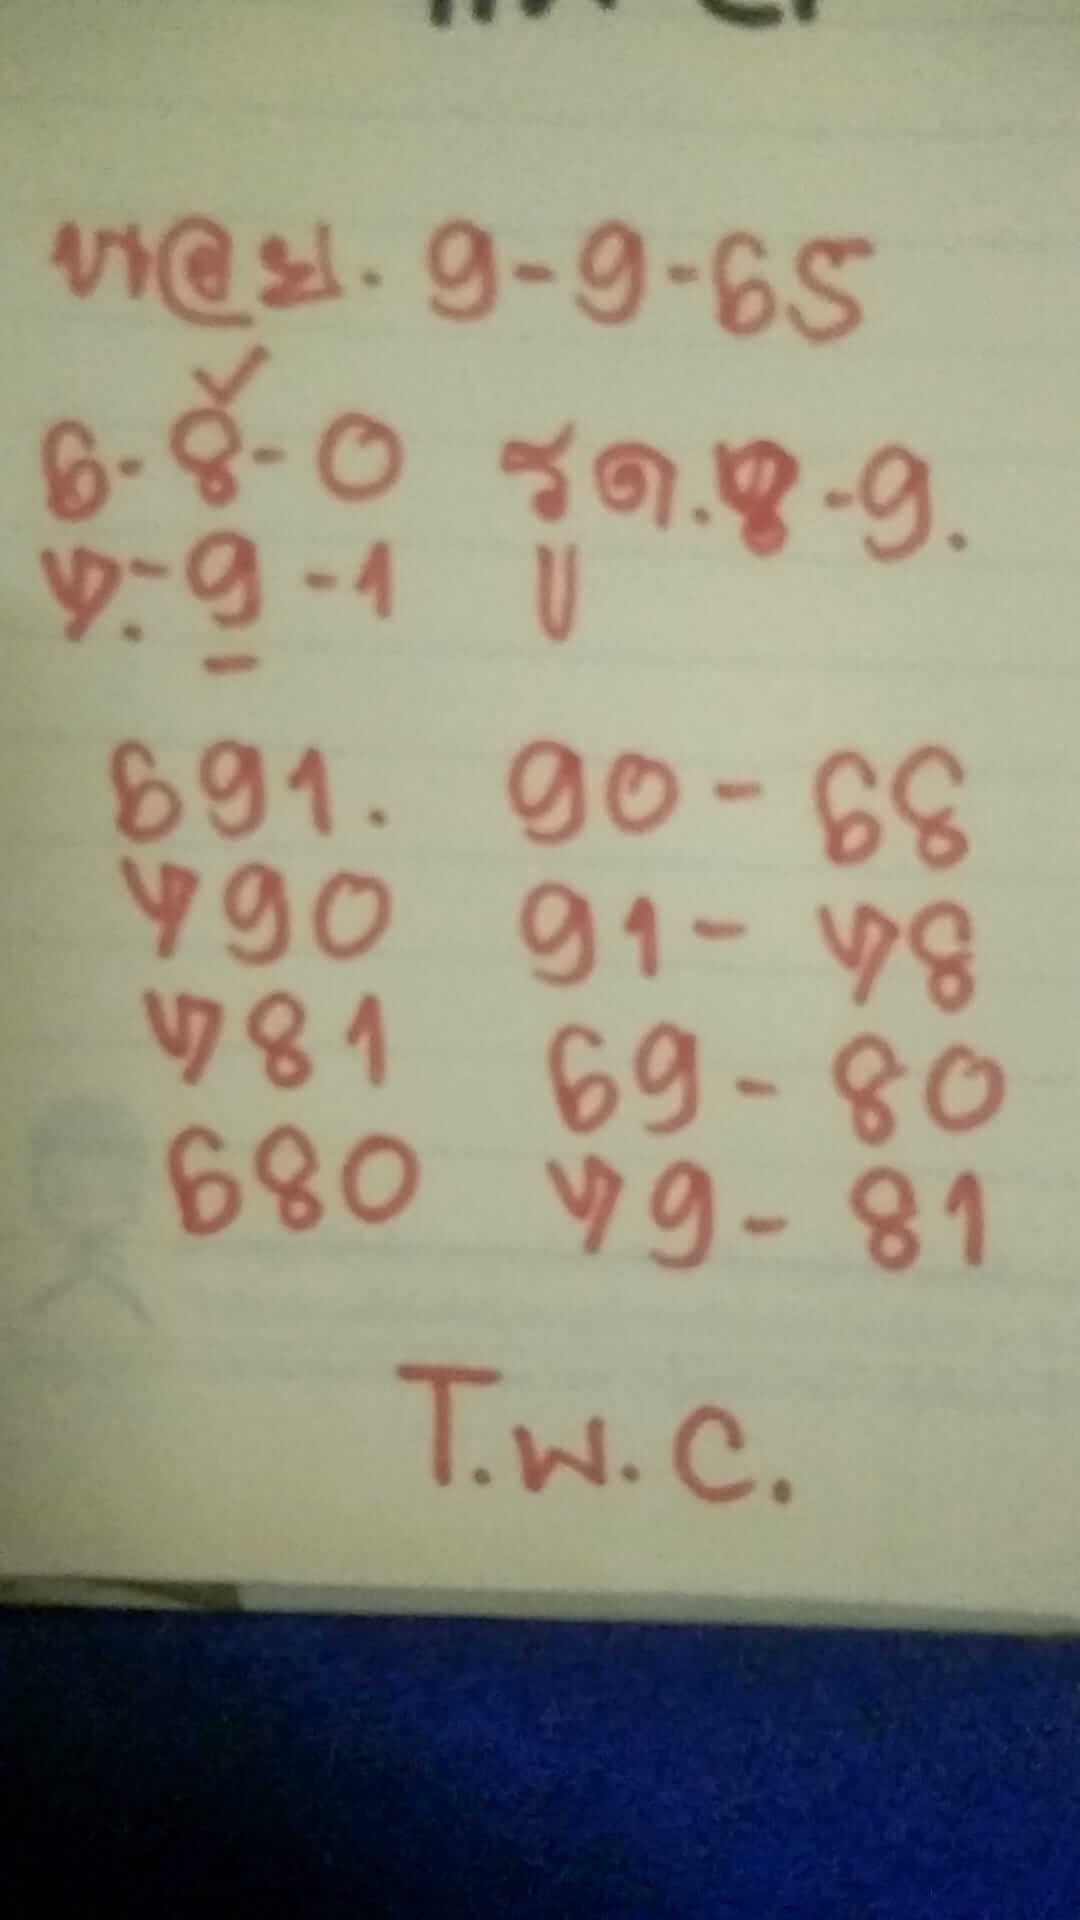 9-9-65
6-8-0 รูด.8-9.
4.-9-1
691. 90-68
490 91-48
481 69-80
680 49-81
T.W.C.